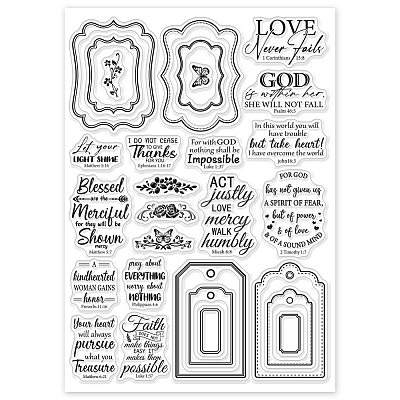 LOVE
Never Fails
1 Corinthians 13:8
GOD
is within her,
SHE WILL NOT FALL
Psalm 46:5
Let your
LIGHT SHINE
Matthew 5:16
I DO NOT CEASE
TO GIVE
Thanks
FOR YOU
Ephesians 1:16-17
For with GOD
nothing shall be
Impossible
Luke 1:37
In this world you will
have trouble
but take heart!
I have overcome the world
john16:3
Blessed
are the
Merciful
for they will be
Shown
mercy
Matthew 5:7
ACT
justly
LOVE
mercy
WALK
humbly
Micah 6:8
FOR GOD
has not given us
A SPIRIT OF FEAR,
but of power
& of love
& OF A SOUND MIND
2 Timothy 1:7
A
kindhearted
WOMAN GAINS
honor
Proverbs 11:16
pray about
EVERYTHING
worry about
NOTHING
Philippians 4:6
Your heart
will always
pursue
what you
Treasure
Matthew 6:21
Faith
DOES NOT
MAKE THINGS
EASY IT
MAKES them
possible
Luke 1:37